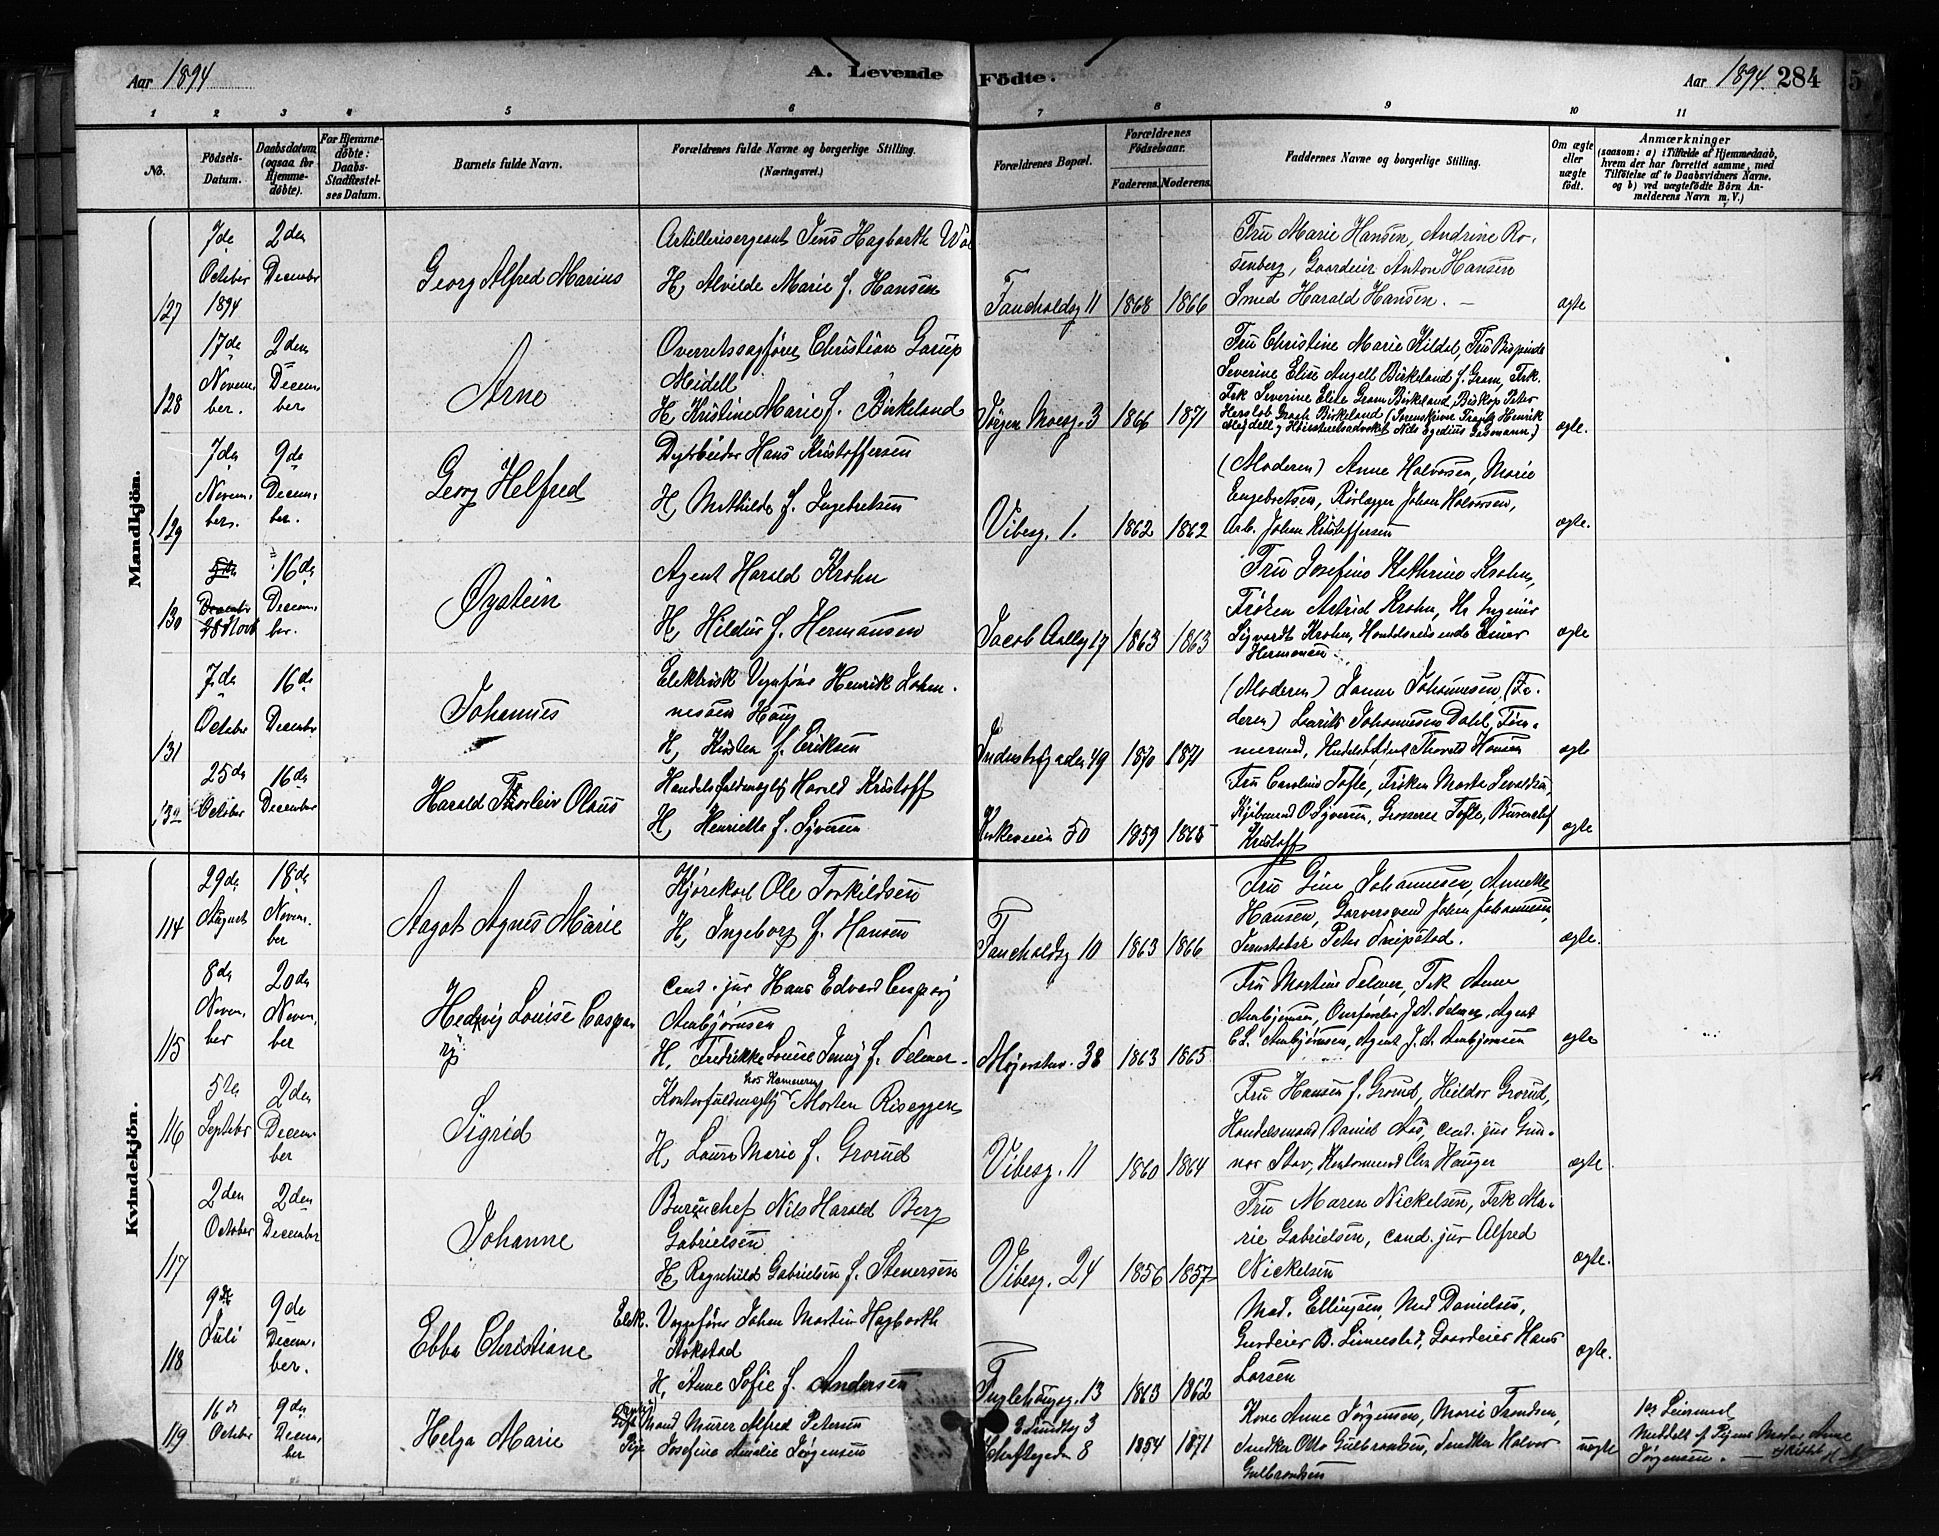 Aar 1894
A. Levende Födte.
Aar 1894. 284
5
1 2 3 4 5 6 7 8 9 10 11
No.
Födsels-Datum.
Daabsdatum (ogsaa for Hjemme-döbte).
For Hjemme-döbte: Daabs-Stadfæstel-ses Datum.
Barnets fulde Navn.
Forældrenes fulde Navne og borgerlige Stilling.
(Næringsvei.)
Forældrenes Bopæl.
Forældrenes Födselsaar.
Faderens. Moderens.
Faddernes Navne og borgerlige Stilling.
Om ægte eller uægte födt.
Anmærkninger
(saasom: a) i Tilfælde af Hjemmedaab, hvem der har forrettet samme, med Tilföielse af to Daabsvidners Navne, og b) ved uægtefödte Börn Anmelderens Navn m. V.)
Mandkjön.
127
7de October 1894
2den December
Georg Alfred Marius
Artillerisergeant Jens Hagbarth
H, Alvilde Marie f. Hansen
11 1868 1866
Fru Marie Hansen, Andrine Ro-
senberg, Gaardeier Anton Hansen
Smed Harald Hansen. —
ægte
128
17de Novem-ber.
2den Decem-ber
Arne
Overretssagfører Christian Garup
Meidell
H, Kristine Marie f. Birkeland
Jørgen Moesg. 3 1866 1871
Fru Christine Marie Kildal, Fru Bispinde
Severine Elise Angell Birkeland f. Gram, Frk.
Frk Severine Elise Gram Birkeland, Biskop Peter
Hersleb Graah Birkeland (Sorenskriver Frantz Henrik
Meydell, Høiesteretsadvokat Nils Egedius
ægte.
129
7de Novem-ber.
9de Decem-ber.
Georg Helfred
Hans Kristoffersen
H, Mathilde f. Ingebretsen
Vibesg. 1. 1862 1862
(Moderen) Anne Halvorsen, Marie
Engebretsen, Rørlægger Johan Halvorsen,
Arb. Johan Kristoffersen
ægte.
130
28 Novb
16de Decem-ber.
Øystein
Agent Harald Krohn
H, Hildur f. Hermansen
Jacob Aallsg 17 1863 1863
Fru Josefine Kathrine Krohn,
Frøken Astrid Krohn, Hr. Ingeniør
Sigvardt Krohn, Handelsreisende Einar
Hermansen
ægte
131
7de October
16de December
Johannes
Elektrisk Vognfører Henrik Johan-
nesen Haug
H, Kirsten f. Eriksen
Industrigaden 49 1870 1871
(Moderen) Johannesen, (Fa-
deren) Laurits Johannesen Dahl, Tøm-
mermand, Thorvald Hansen
ægte
132
25de October
16de December
Harald Thorleiv Olaus
Handelsfuldmægtig Harald Kristoff
H, Henriette f. Syversen
Kirkeveien 50 1859 1865
Fru Caroline Tofte, Frøken Marta
Kjøbmand O. Syversen, Grosserer Tofte,
Kristoff
ægte
Kvindekjön.
114
29de August
18de Novem-ber
Aagot Agnes Marie
Kjørekarl Ole Torkildsen
H, Ingeborg f. Hansen
10 1863 1866
Fru Gina Johannesen, Annette
Hansen, Garversvend Johan Johannesen,
Jernstøber Peter Snipstad.
ægte.
115
8de Novem-ber
20de Novem-ber
Hedvig Louise Caspa-
ry
Cand. jur Hans Edvard Caspary
Arnbjørnsen
H, Fredrikke Louise Jenny f. Selmer.
Majorstuv. 38 1863 1865
Fru Martine Selmer, Frk Anna
Arnbjørnsen, J. A. Selmer, Agent
C. L. Arnbjørnsen, Agent J. A. Arnbjørnsen
ægte
116
5te Septeber
2den Decem-ber
Sigrid
hos Kæmneren
Kontorfuldmægtig Morten Riseggen
H, Laura Marie f. Grorud
Vibesg. 11 1860 1864
Fru Hansen f. Grorud, Hildur Grorud,
Handelsmand Daniel Aas, cand. jur Gun-
nar Stav, Kontormand Chr Hauger
ægte.
117
2den October
2den December
Johanne
Bureauchef Nils Harald Berg
Gabrielsen
H, Ragnhild Gabrielsen f. Stenersen
Vibesg. 24 1856 1857
Fru Maren Nickelsen, Frk Ma-
rie Gabrielsen, cand. jur Alfred
Nickelsen
ægte.
118
9de Juli
9de Decem-ber.
Ebba Christiane
Elek. Vognfører Johan Martin Hagbarth
Stokstad
H, Anne Sofie f. Andersen
Fuglehaugg. 13 1863 1862
Mad. Ellingsen, Mad Danielsen,
Gardeier B. Simensted, Gaardeier Hans
Larsen
ægte.
119
16de October
9de Decem-ber
Helga Marie
Gift Mand Murer Alfred Petersen
Pige Josefine Amalie Jørgensen
3
8 1854 1871
Kone Anne Jørgensen, Marie Trondsen,
Snedker Otto Gulbrandsen, Snedker Halvor
Gulbrandsen
uægte
Meddelt af Pigens Moder Anne
Jørgensen. —